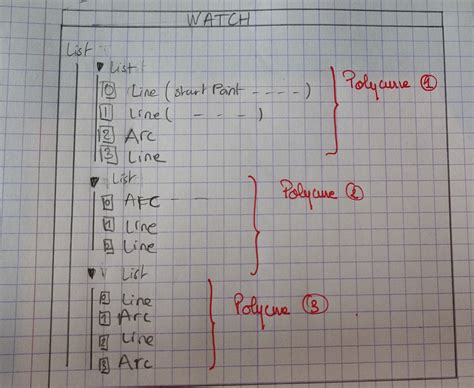 WATCH
List
▼ List
0 Line (start Point - - - -) Polycurve 1
1 Line ( - - - )
2 Arc
3 Line
▼ List
0 AFC Polycurve 2
1 Line
2 Line
▼ List
0 Line
1 Arc Polycurve 3
2 Line
3 Arc